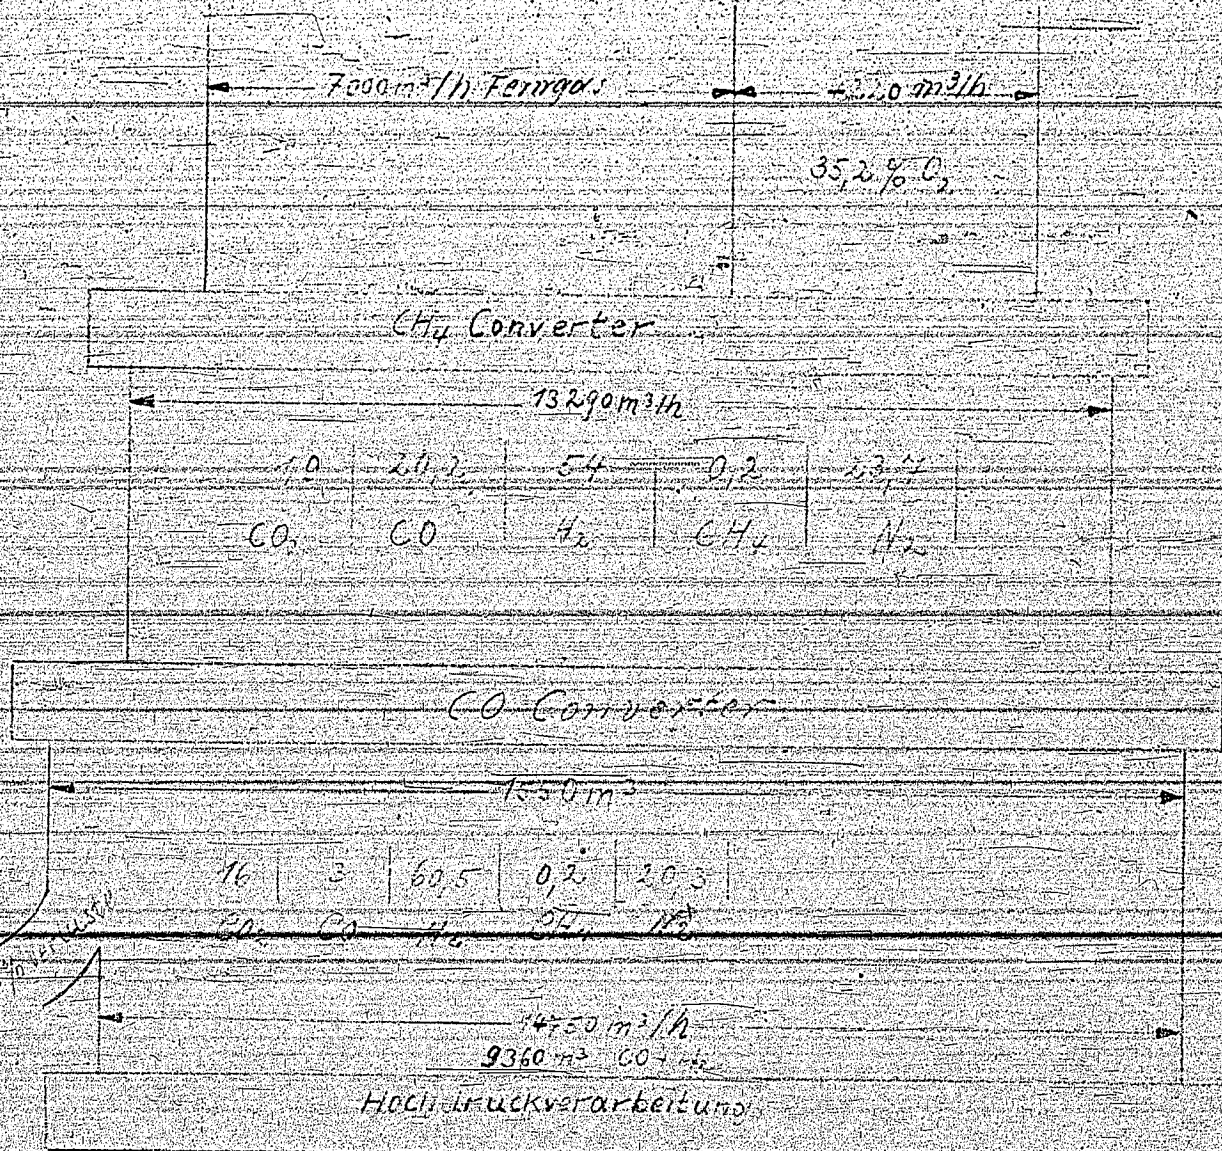 7000 m³/h Ferngas
m³/h
35,2 % O₂
CH₄ Converter
13290 m³/h
20,2 54 0,2 23,7
CO₂ CO H₂ CH₄ N₂
CO Converter
m³
16 3 60,5 0,2 20,3
CO₂ CO H₂ CH₄ N₂
14750 m³/h
9360 m³ CO + H₂
Hochdruckverarbeitung